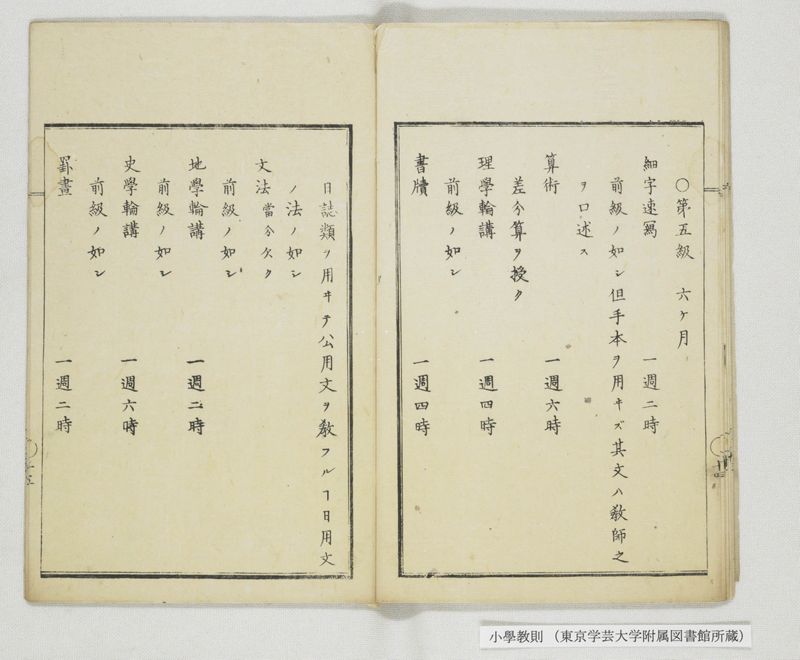 〇第五級　六ケ月
細字速寫　一週二時
前級ノ如シ但手本ヲ用ヰズ其文ハ教師之
ヲ口述ス
算術　一週六時
差分算ヲ授ク
理學輪講　一週四時
前級ノ如シ
書牘　一週四時
日誌類ヲ用ヰテ公用文ヲ教フルヿ日用文
ノ法ノ如シ
文法當分欠ク
前級ノ如シ
地學輪講　一週二時
前級ノ如シ
史學輪講　一週六時
前級ノ如シ
罫畫　一週二時
小學教則 （東京学芸大学附属図書館所蔵）